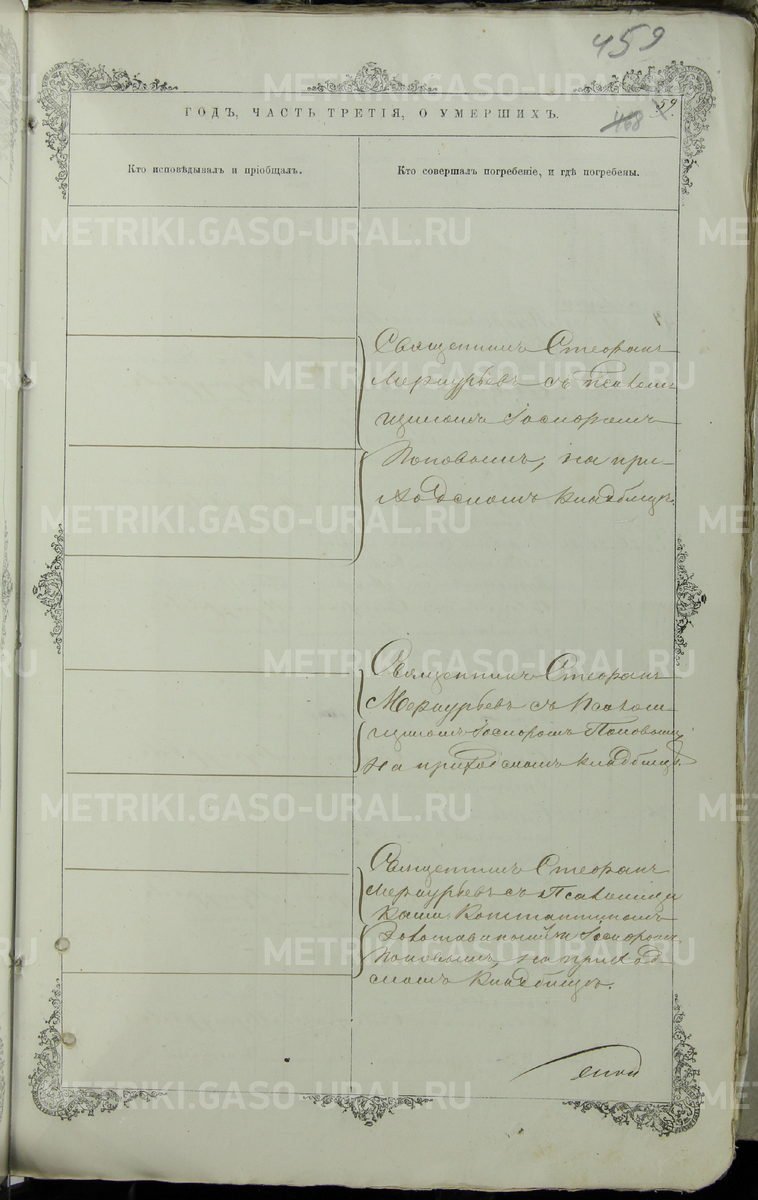 459
59.
468
ГОДЪ, ЧАСТЬ ТРЕТІЯ, О УМЕРШИХЪ.
Кто исповѣдывалъ и пріобщалъ.
Кто совершалъ погребеніе, и гдѣ погребены.
Священникъ Стефанъ
Меркурьевъ съ псалом-
щикомъ Госпоромъ
Поповымъ, на при-
ходскомъ кладбищѣ.
Священникъ Стефанъ
Меркурьевъ съ Псалом-
щикомъ Госпоромъ Поповымъ,
на приходскомъ кладбищѣ.
Священникъ Стефанъ
Меркурьевъ съ Псаломщи
ками Константиномъ
и
Поповымъ, на приход-
скомъ кладбищѣ.
METRIKI.GASO-URAL.RU